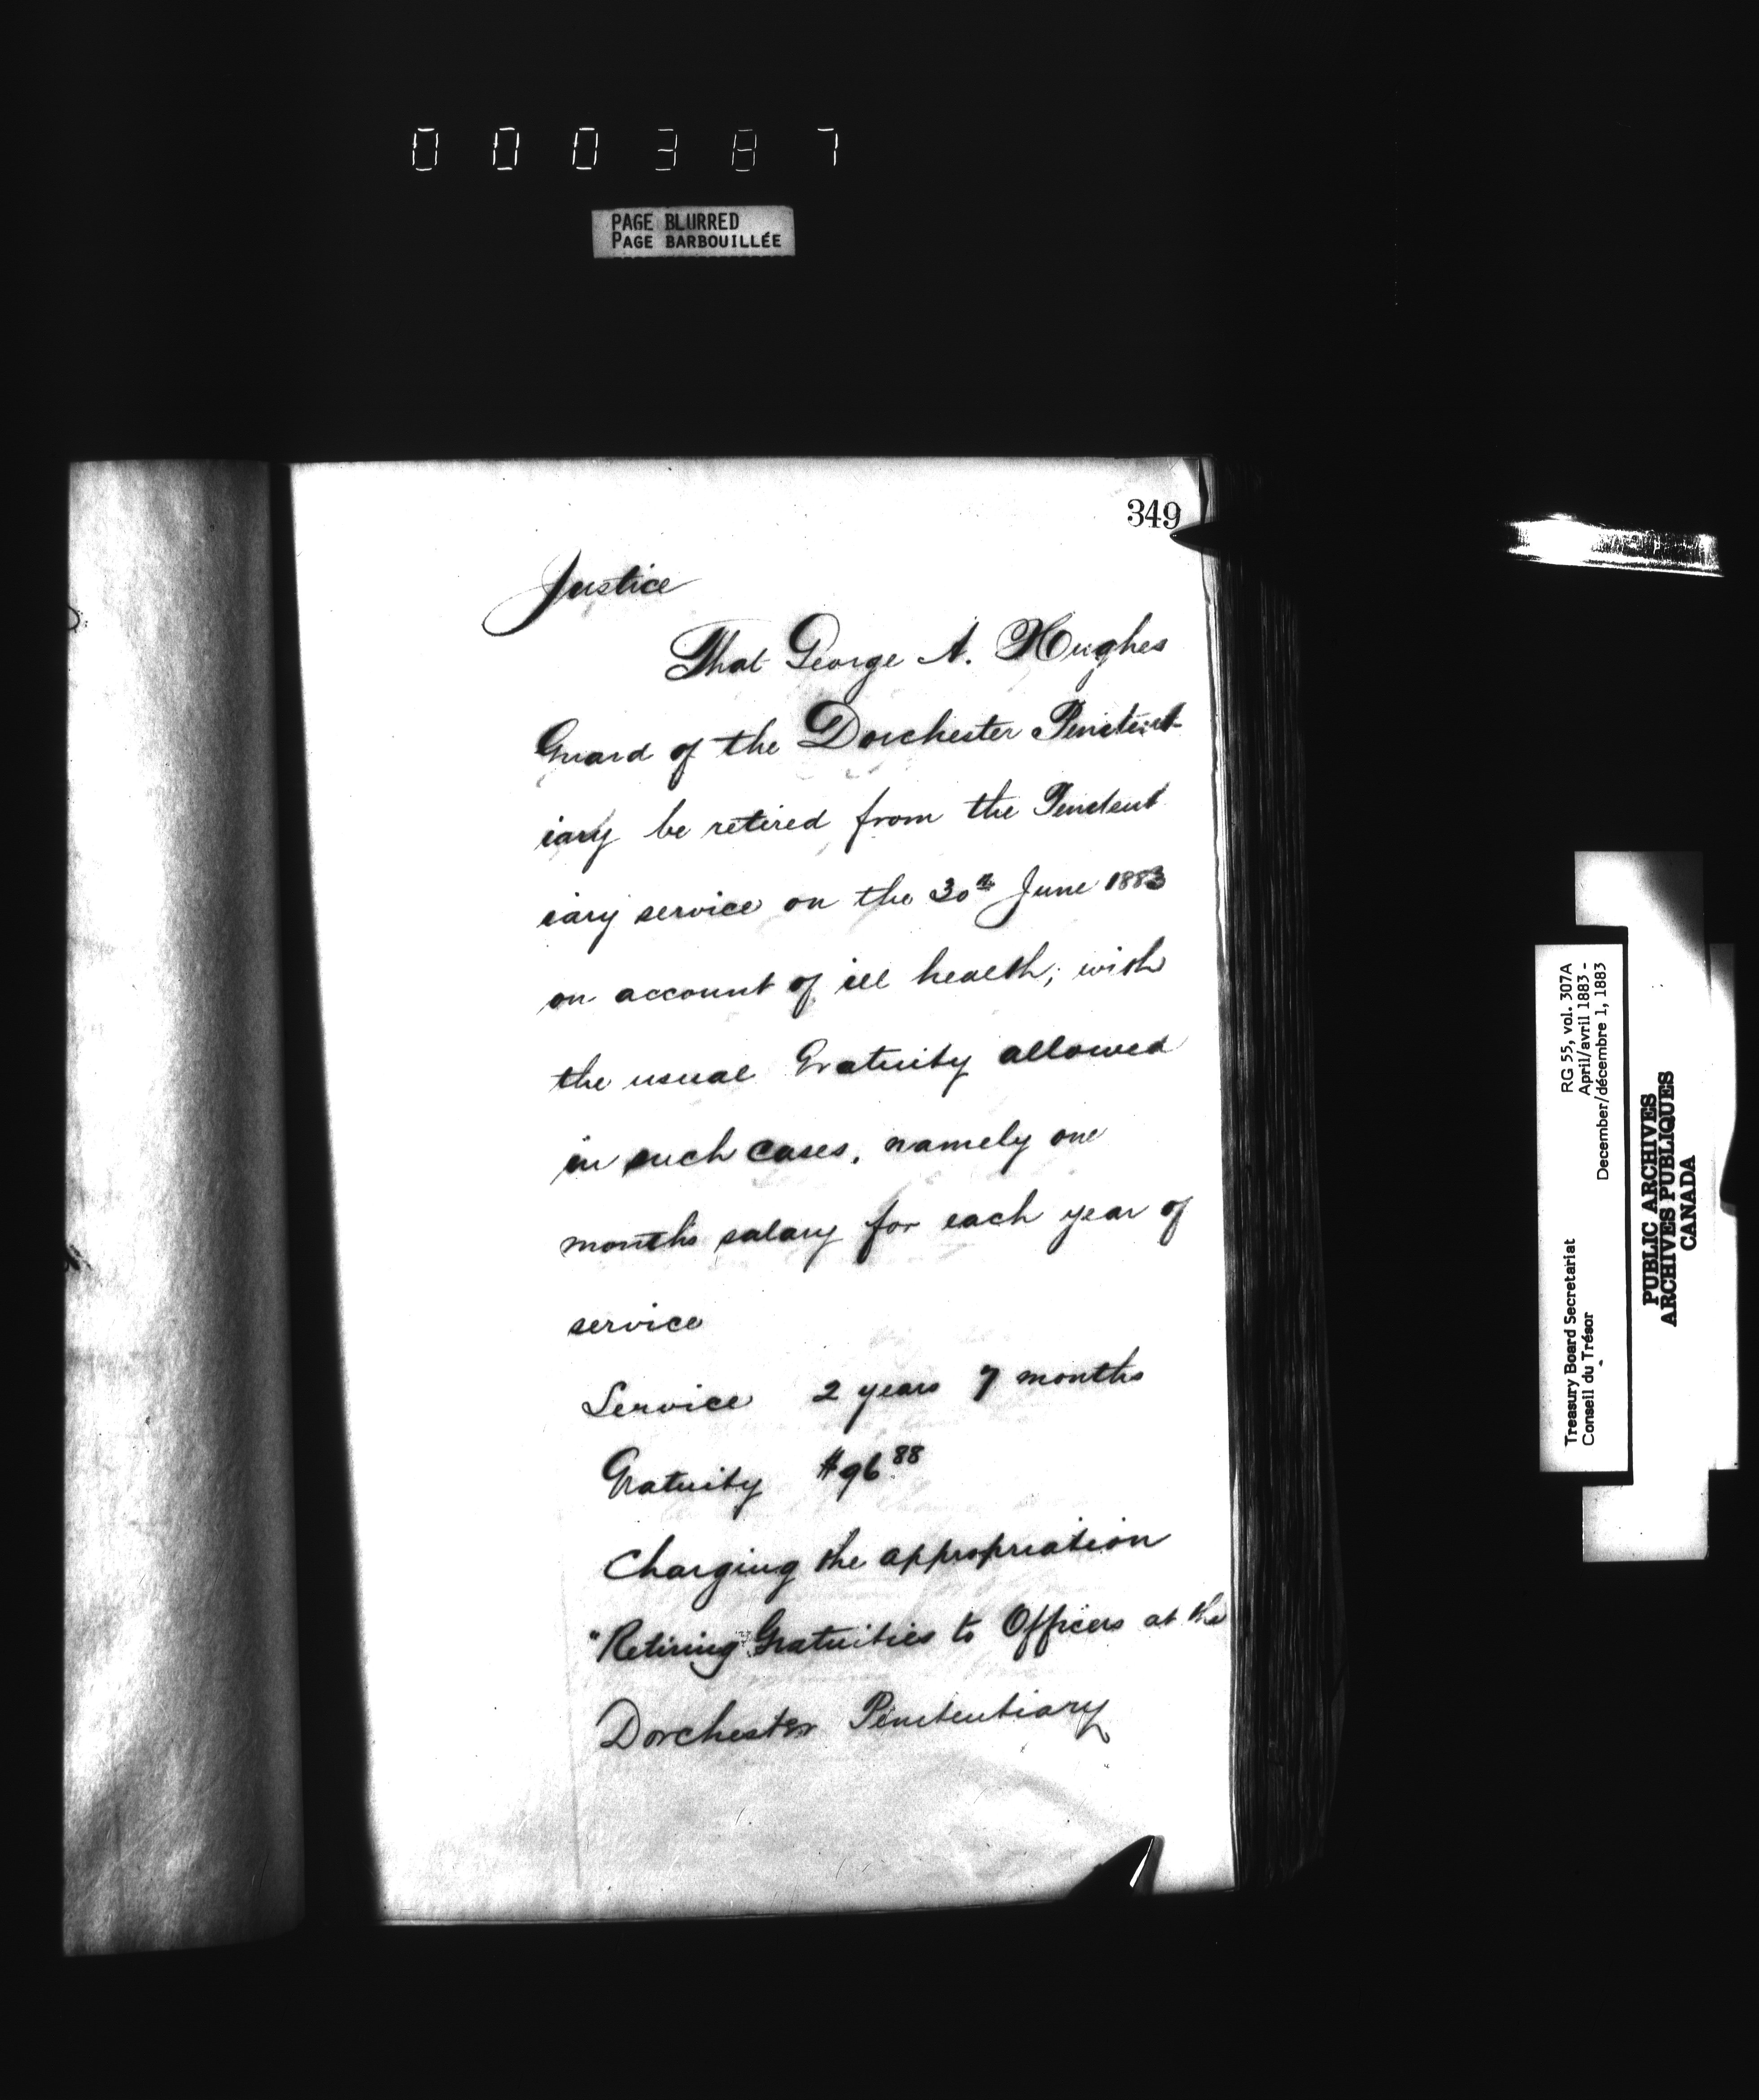 000387
PAGE BLURRED
PAGE BARBOUILLÉE
349
Justice
That George A. Hughes
Guard of the Dorchester Penitent-
iary be retired from the Penitent
iary service on the 30th June 1883
on account of ill health; with
the usual Gratuity allowed
in such cases, namely one
month's salary for each year of
service
Service 2 years 7 months
Gratuity $96.88
Charging the appropriation
"Retiring Gratuities to Officers at the
Dorchester Penitentiary
Treasury Board Secretariat RG 55, vol. 307A
Conseil du Trésor April/avril 1883 -
December/décembre 1, 1883
PUBLIC ARCHIVES
ARCHIVES PUBLIQUES
CANADA